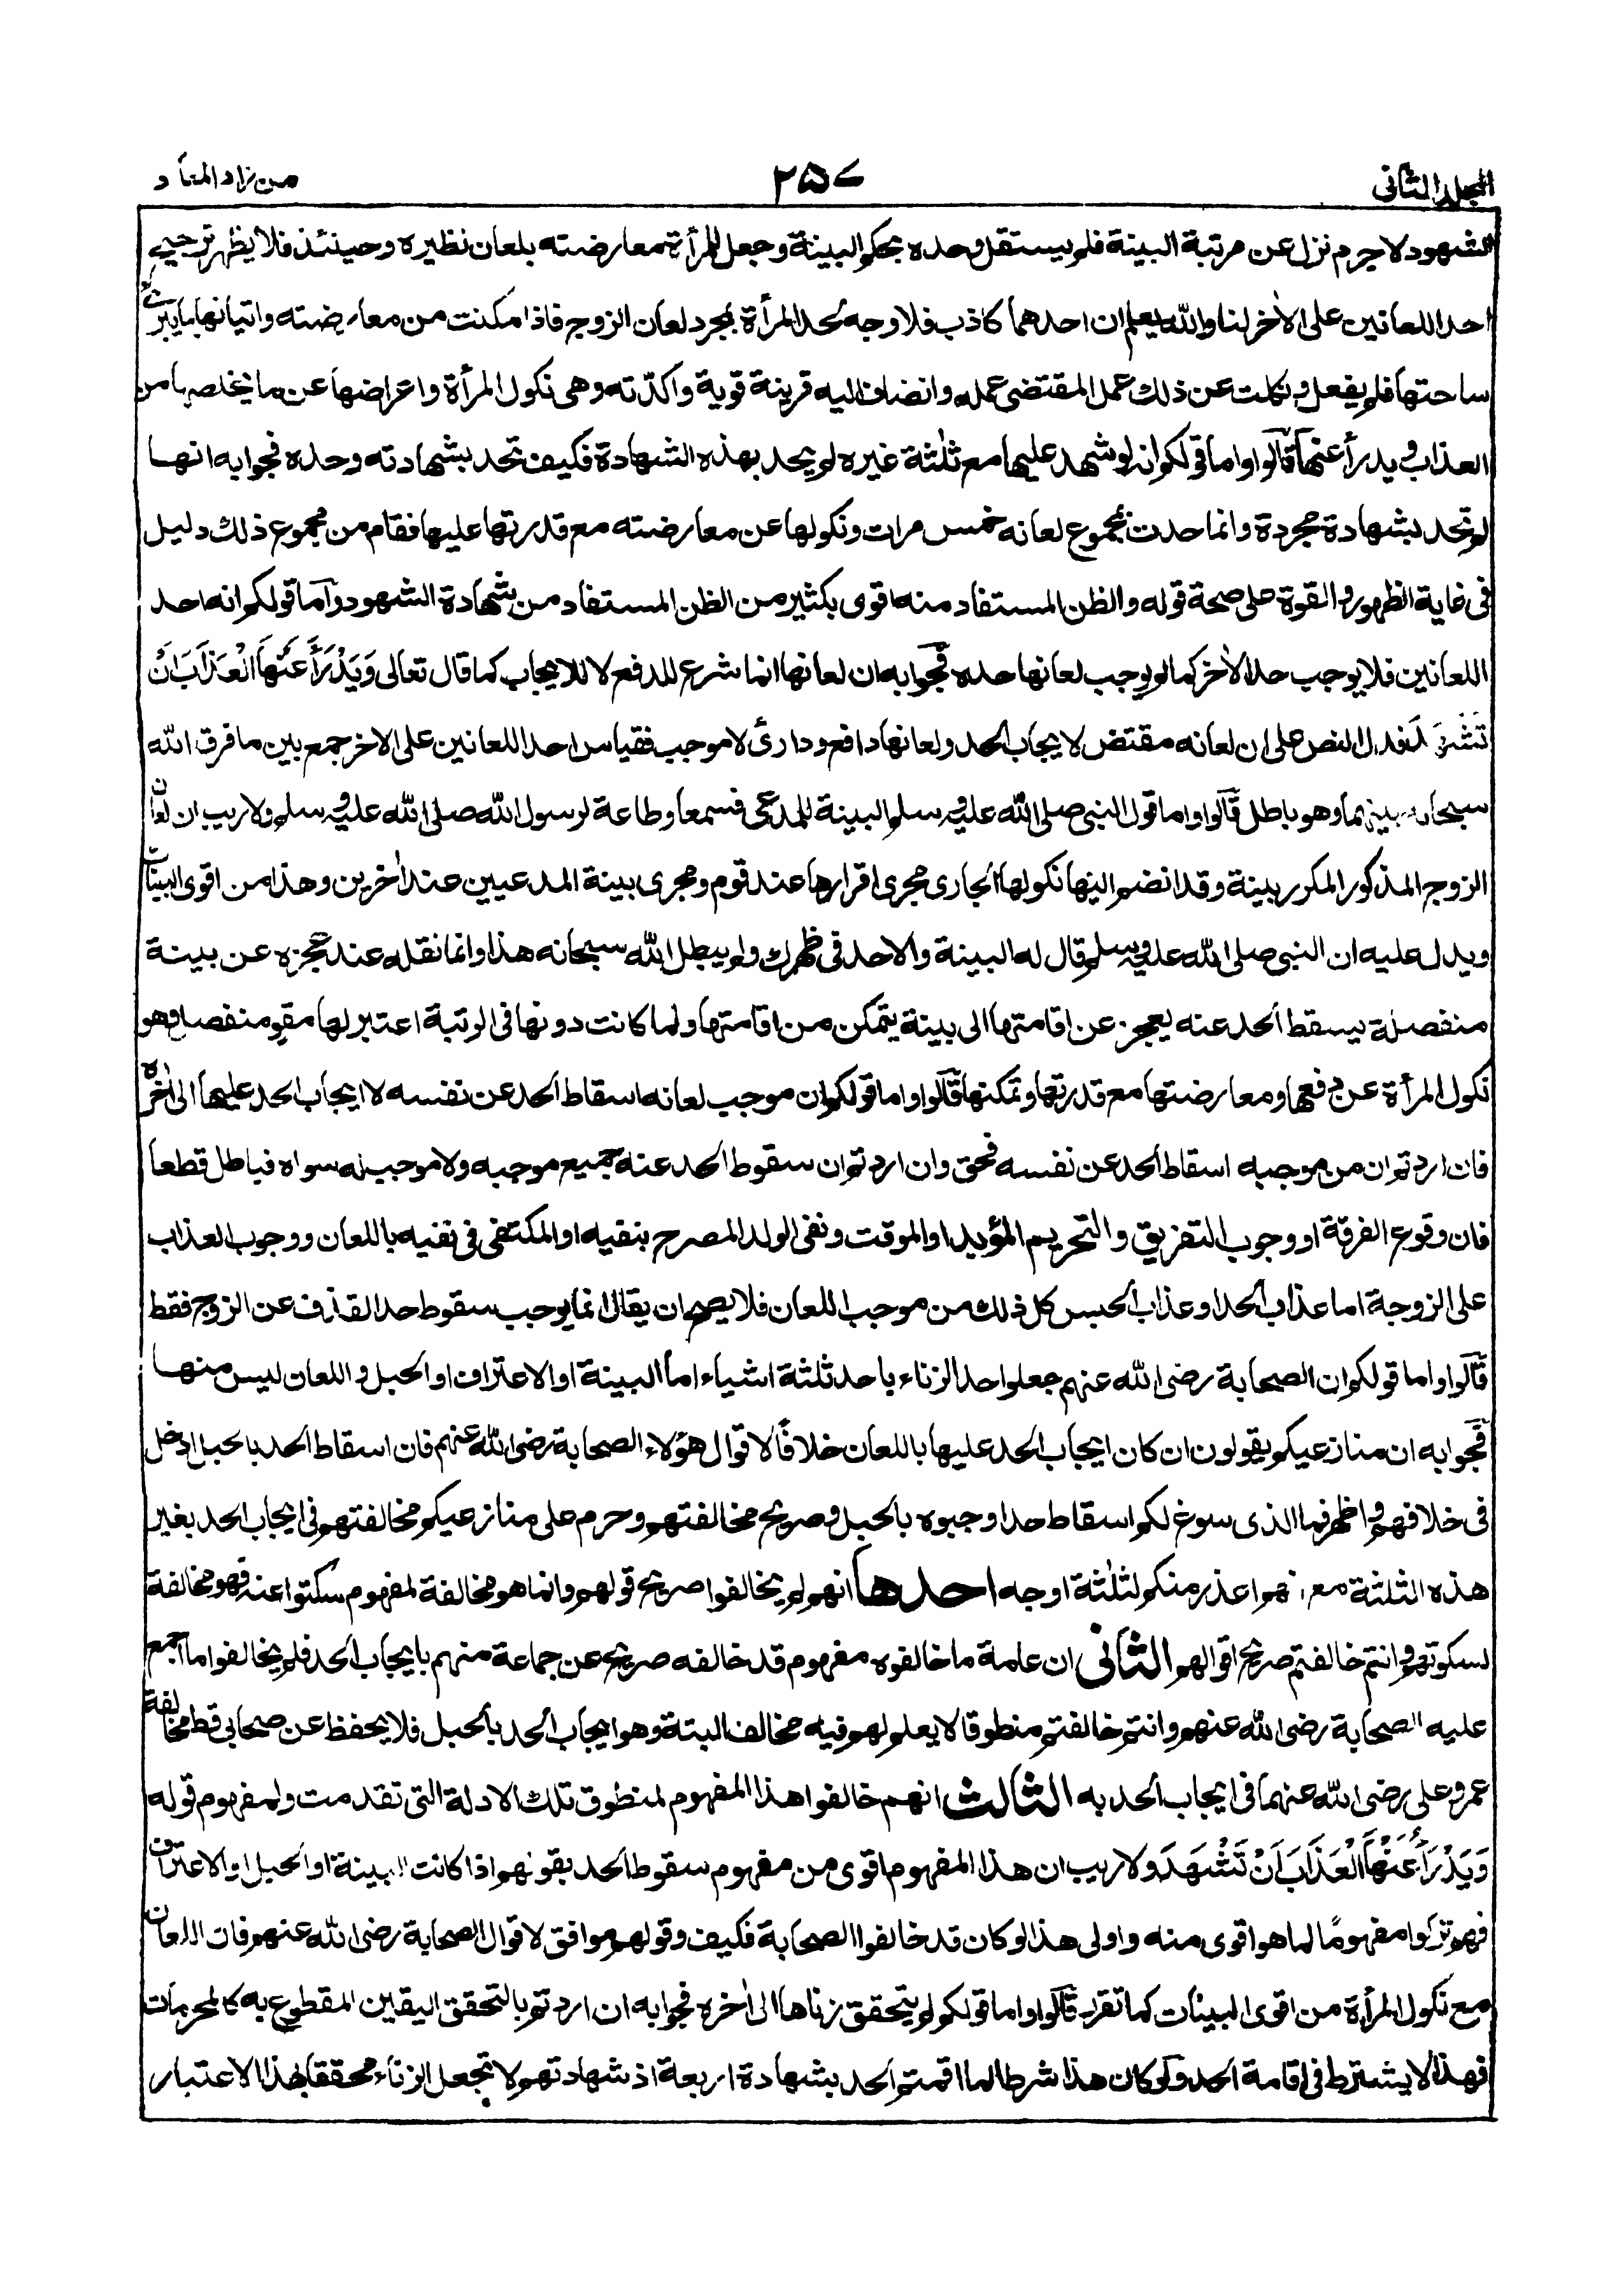 المجلد الثاني
٢٥٧
من زاد المعاد
الشهود لاجرم نزل عن مرتبة البينة فلم يستقل وحده بحكم البينة وجعل للمرأة معارضته بلعان نظيره وحينئذ فلا يظهر ترجيح
احد اللعانين على الاٰخر لنا والله يعلم ان احدهما كاذب فلا وجه لحد المرأة بمجرد لعان الزوج فاذا مكنت من معارضته واتيانها بما يبرئ
ساحتها فلم يفعل ونكلت عن ذلك عمل المقتضى عمله وانضاف اليه قرينة قوية واكدّته وهى نكول المرأة واعراضها عن ما يخلصها من
العذاب ويدرأ عنها قالوا واما قولكم انه لو شهد عليها مع ثلٰثة غيره لم يحد بهذه الشهادة فكيف تحد بشهادته وحده فجوابه انها
لم تحد بشهادة مجردة وانما حدت بمجموع لعانه خمس مرات ونكولها عن معارضته مع قدرتها عليها فقام من مجموع ذلك دليل
فى غاية الظهور والقوة على صحة قوله والظن المستفاد منه اقوى بكثير من الظن المستفاد من شهادة الشهود واما قولكم انه احد
اللعانين فلا يوجب حد الاٰخر كما لم يوجب لعانها حده فجوابه ان لعانها انما شرع للدفع لا للايجاب كما قال تعالى وَيَدْرَأُ عَنْهَا الْعَذَابَ اَنْ
تَشْهَدَ فدل النص على ان لعانه مقتض لايجاب الحد ولعانها دافع ودارئ لا موجب فقياس احد اللعانين على الاخر جمع بين ما فرق الله
سبحانه بينهما وهو باطل قالوا واما قول النبى صلى الله عليه وسلم البينة للمدعى فسمعا وطاعة لرسول الله صلى الله عليه وسلم ولا ريب ان لعان
الزوج المذكور المكرر بينة وقد انضم اليها نكولها الجارى مجرى اقرارها عند قوم ومجرى بينة المدعيين عند اٰخرين وهذا من اقوى البينات
ويدل عليه ان النبى صلى الله عليه وسلم قال له البينة والا حد فى ظهرك ولم يبطل الله سبحانه هذا وانما نقله عند عجزه عن بينة
منفصلة يسقط الحد عنه يعجز عن اقامتها الى بينة يتمكن من اقامتها ولما كانت دونها فى الرتبة اعتبر لها مقو منفصل وهو
نكول المرأة عن دفعها ومعارضتها مع قدرتها وتمكنها قالوا واما قولكم ان موجب لعانه اسقاط الحد عن نفسه لا ايجاب الحد عليها الى اٰخره
فان اردتم ان من موجبه اسقاط الحد عن نفسه فحق وان اردتم ان سقوط الحد عنه جميع موجبه ولا موجب له سواه فباطل قطعا
فان وقوع الفرقة او وجوب التفريق والتحريم المؤبد او الموقت ونفى الولد المصرح بنفيه او المكتفى فى نفيه باللعان ووجوب العذاب
على الزوجة اما عذاب الحد او عذاب الحبس كل ذلك من موجب اللعان فلا يصح ان يقال انما يوجب سقوط حد القذف عن الزوج فقط
قالوا واما قولكم ان الصحابة رضى الله عنهم جعلوا حد الزناء باحد ثلٰثة اشياء اما البينة او الاعتراف او الحبل واللعان ليس منها
فجوابه ان منازعيكم يقولون ان كان ايجاب الحد عليها باللعان خلافًا لاقوال هؤلاء الصحابة رضى الله عنهم فان اسقاط الحد بالحبل ادخل
فى خلافهم واظهر فما الذى سوغ لكم اسقاط حد اوجبوه بالحبل وصريح مخالفتهم وحرم على منازعيكم مخالفتهم فى ايجاب الحد بغير
هذه الثلٰثة مع انهم اعذر منكم لثلٰثة اوجه احدها انهم لم يخالفوا صريح قولهم وانما هو مخالفة لمفهوم سكتوا عنه فهو مخالفة
لسكوتهم وانتم خالفتم صريح اقوالهم الثانى ان عامة ما خالفوه مفهوم قد خالفه صريح عن جماعة منهم بايجاب الحد فلم يخالفوا ما اجمع
عليه الصحابة رضى الله عنهم وانتم خالفتم منطوقا لا يعلم لهم فيه مخالف البتة وهو ايجاب الحد بالحبل فلا يحفظ عن صحابى قط مخالفة
عمر وعلى رضى الله عنهما فى ايجاب الحد به الثالث انهم خالفوا هذا المفهوم لمنطوق تلك الادلة التى تقدمت ولمفهوم قوله
وَيَدْرَأُ عَنْهَا الْعَذَابَ اَنْ تَشْهَدَ ولا ريب ان هذا المفهوم اقوى من مفهوم سقوط الحد بقولهم اذا كانت البينة او الحبل او الاعتراف
فهم تركوا مفهومًا لما هو اقوى منه واولى هذا لو كان قد خالفوا الصحابة فكيف وقولهم موافق لاقوال الصحابة رضى الله عنهم فان اللعان
مع نكول المرأة من اقوى البينات كما تقرر قالوا واما قولكم لم يتحقق زناها الى اٰخره فجوابه ان اردتم بالتحقق اليقين المقطوع به كالمحرمات
فهذا لا يشترط فى اقامة الحد ولو كان هذا شرطا لما اقمتم الحد بشهادة اربعة اذ شهادتهم لا تجعل الزناء محققا بهذا الاعتبار